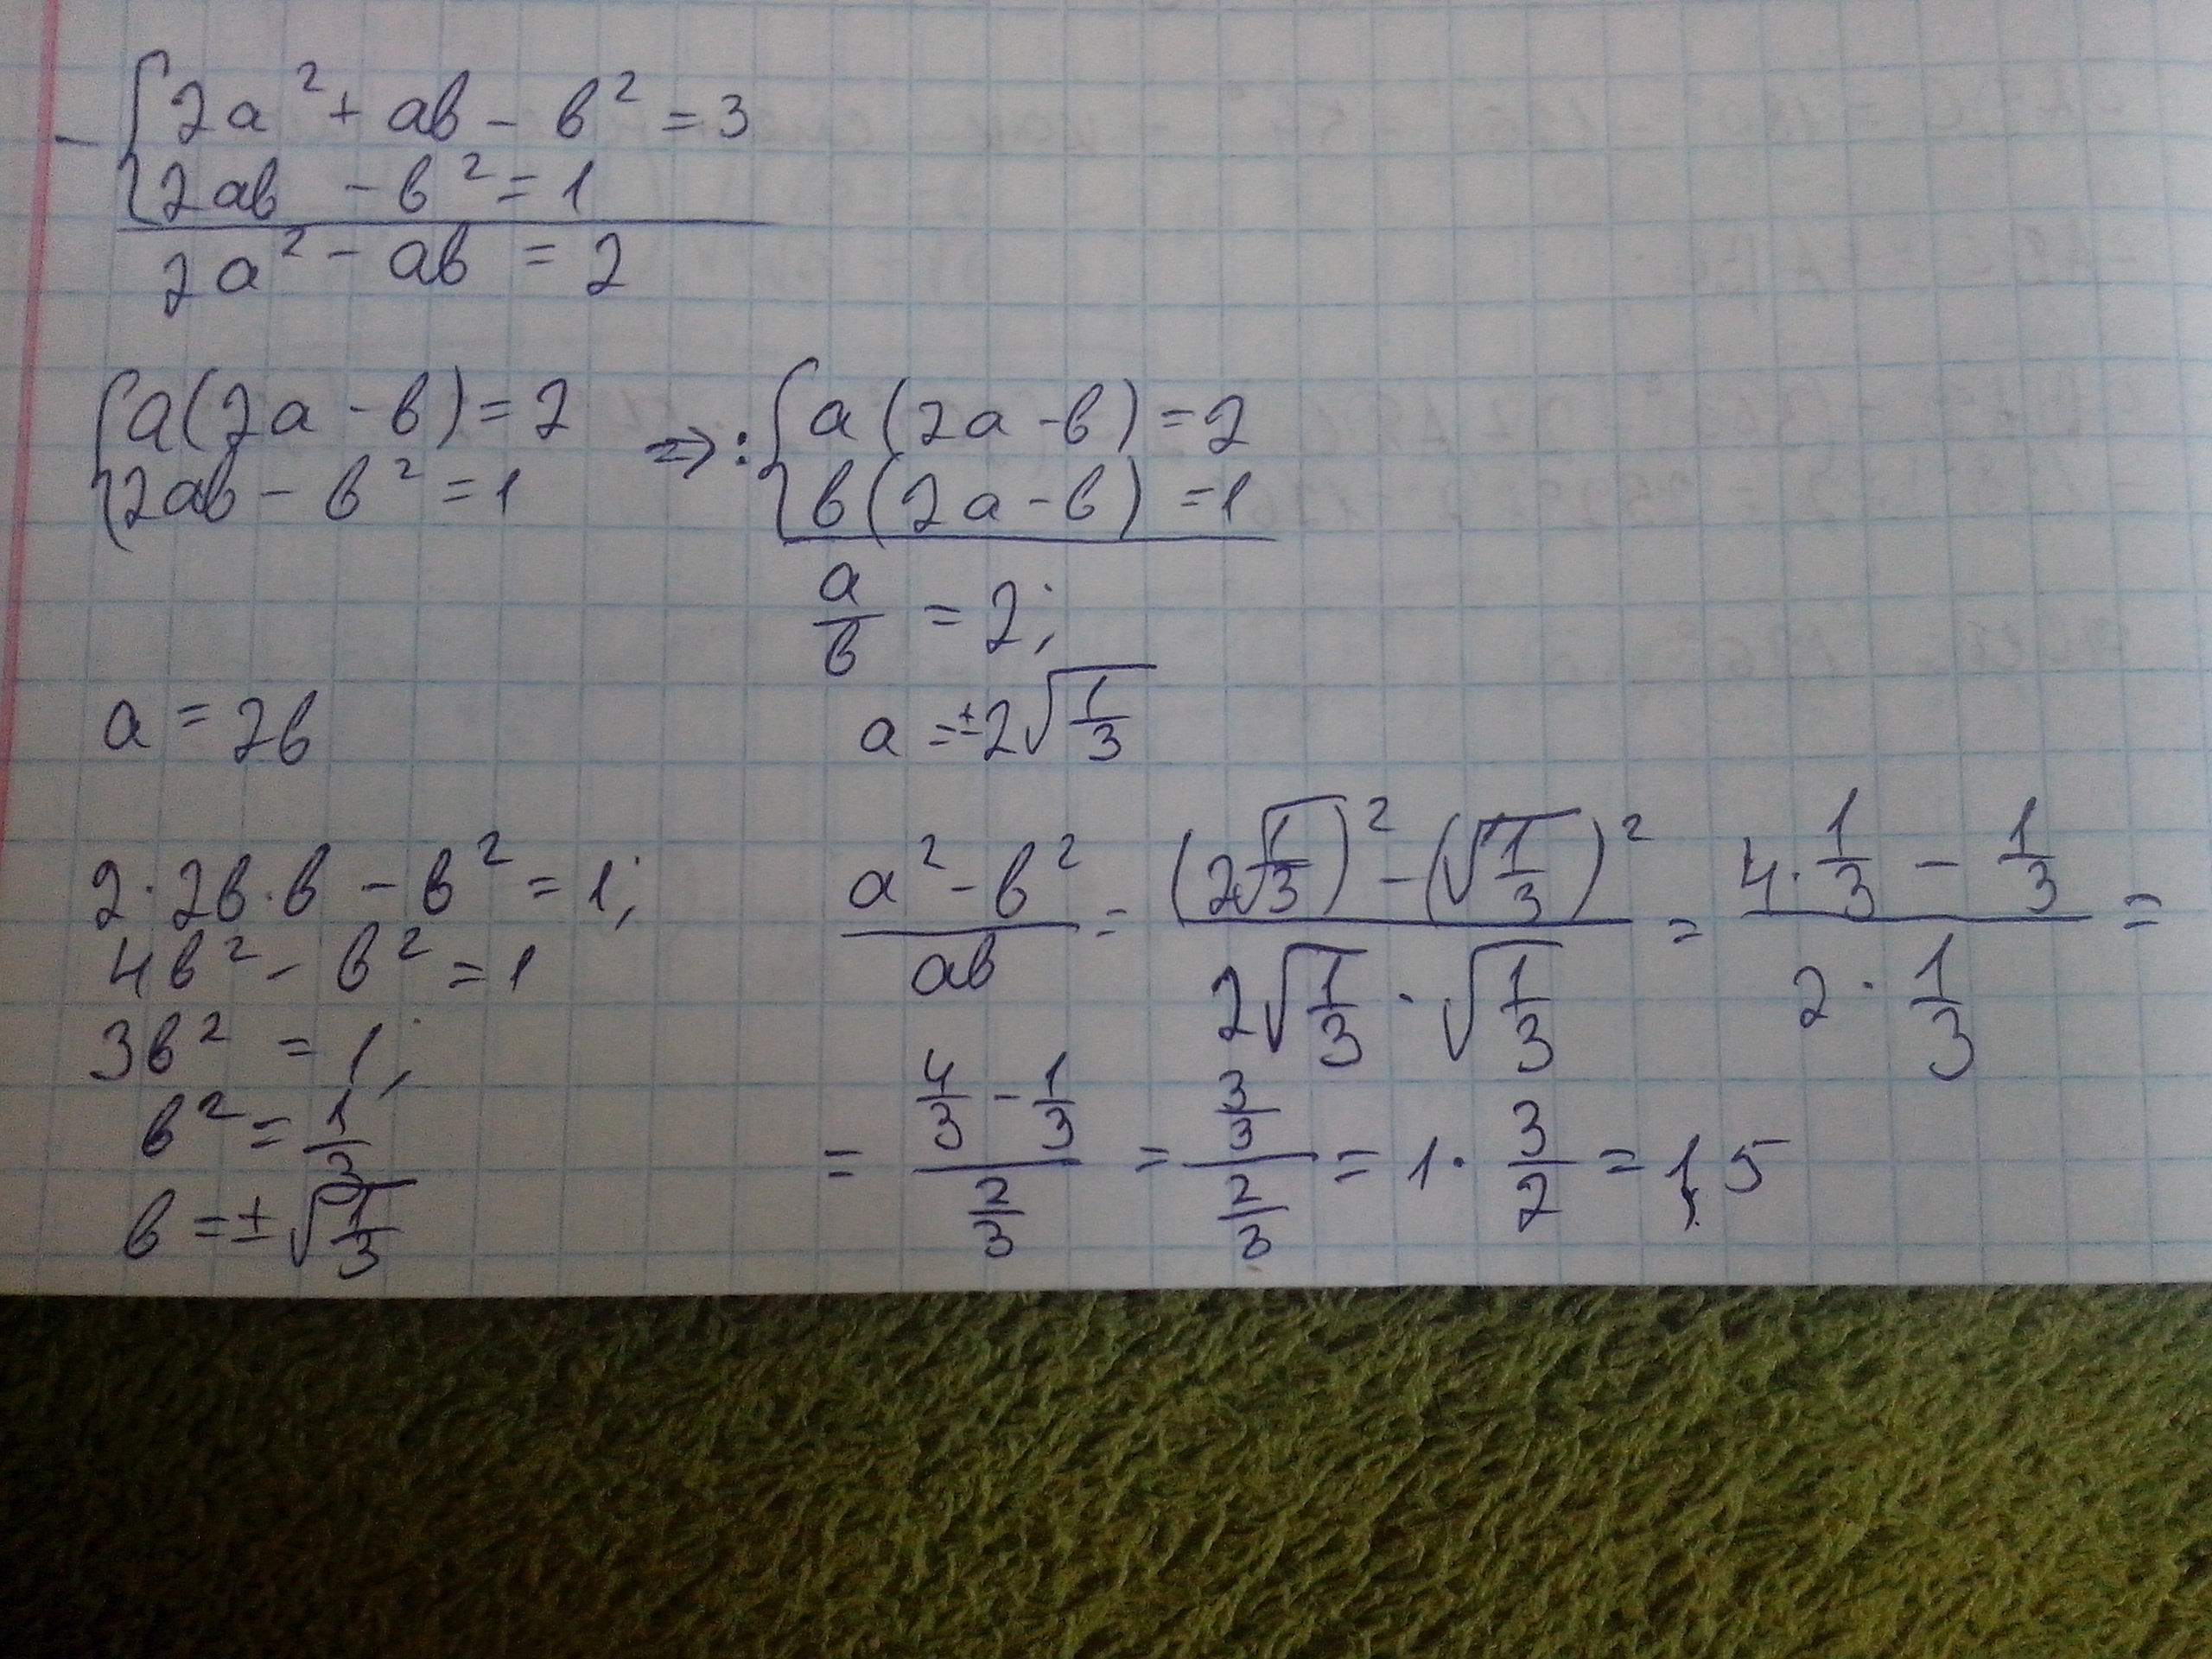 - { 2a² + ab - b² = 3
2ab - b² = 1
2a² - ab = 2
{ a(2a - b) = 2
2ab - b² = 1
⇒ : { a(2a - b) = 2
b(2a - b) = 1
a/b = 2;
a = 2b
a = ±2√(1/3)
2·2b·b - b² = 1;
4b² - b² = 1
3b² = 1;
b² = 1/3
b = ±√(1/3)
(a² - b²)/(ab) = ((2√(1/3))² - (√(1/3))²)/(2√(1/3) · √(1/3)) = (4·1/3 - 1/3)/(2·1/3) =
= (4/3 - 1/3)/(2/3) = (3/3)/(2/3) = 1 · 3/2 = 1,5